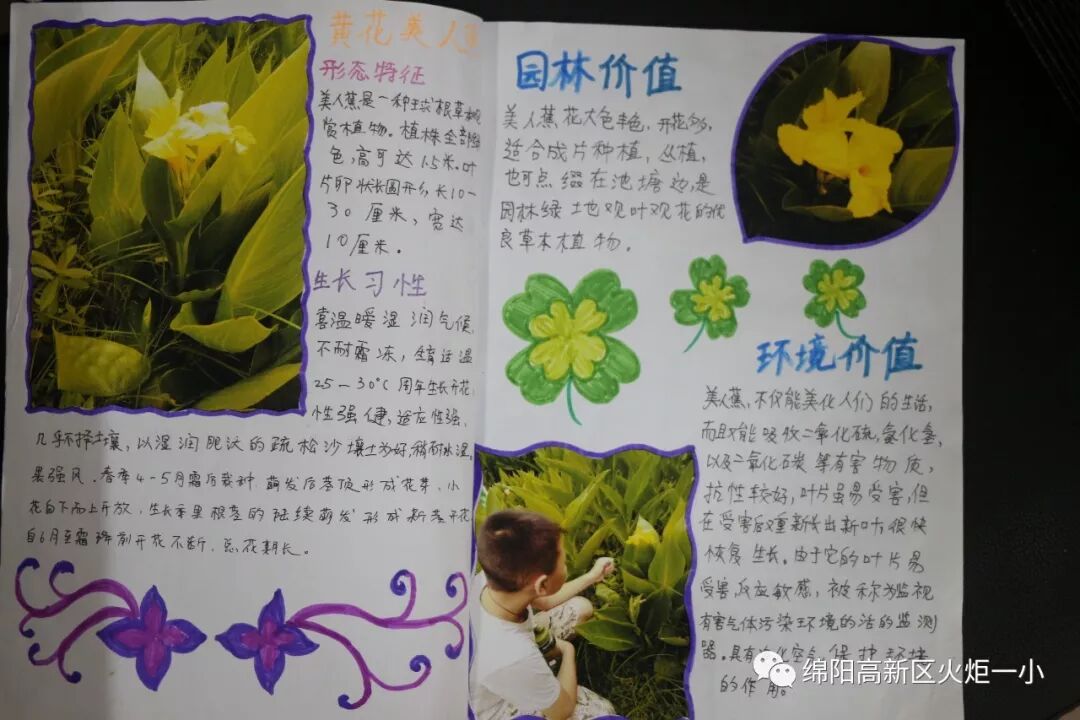 黄花美人蕉
形态特征
美人蕉是一种球根草本观
赏植物。植株全部绿
色,高可达1.5米.叶
片卵状长圆形,长10-
30厘米,宽达
10厘米。
生长习性
喜温暖湿润气候,
不耐霜冻,
25-30℃周年生长开花,
性强健,适应性强,
几乎不择土壤,以湿润肥沃的疏松沙壤土为好,稍耐水湿,
畏强风.春季4-5月霜后栽种.萌发后茎顶形成花芽,小
花自下而上开放,生长季里根茎的陆续萌发形成新茎开花
自6月至霜降前开花不断,总花期长。
园林价值
美人蕉花大色丰色,开花多,
适合成片种植,丛植,
也可点缀在池塘边,是
园林绿土地观叶观花的优
良草本植物.
环境价值
美人蕉,不仅能美化人们的生活,
而且又能吸收二氧化硫,氯化氢,
以及二氧化碳等有害物质,
抗性较好,叶片虽易受害,但
在受害后又重新长出新叶,很快
恢复生长.由于它的叶片易
受害,反应敏感,被称为监视
有害气体污染环境的活的监测
器.具有净化空气,保护环境
的作用。
绵阳高新区火炬一小